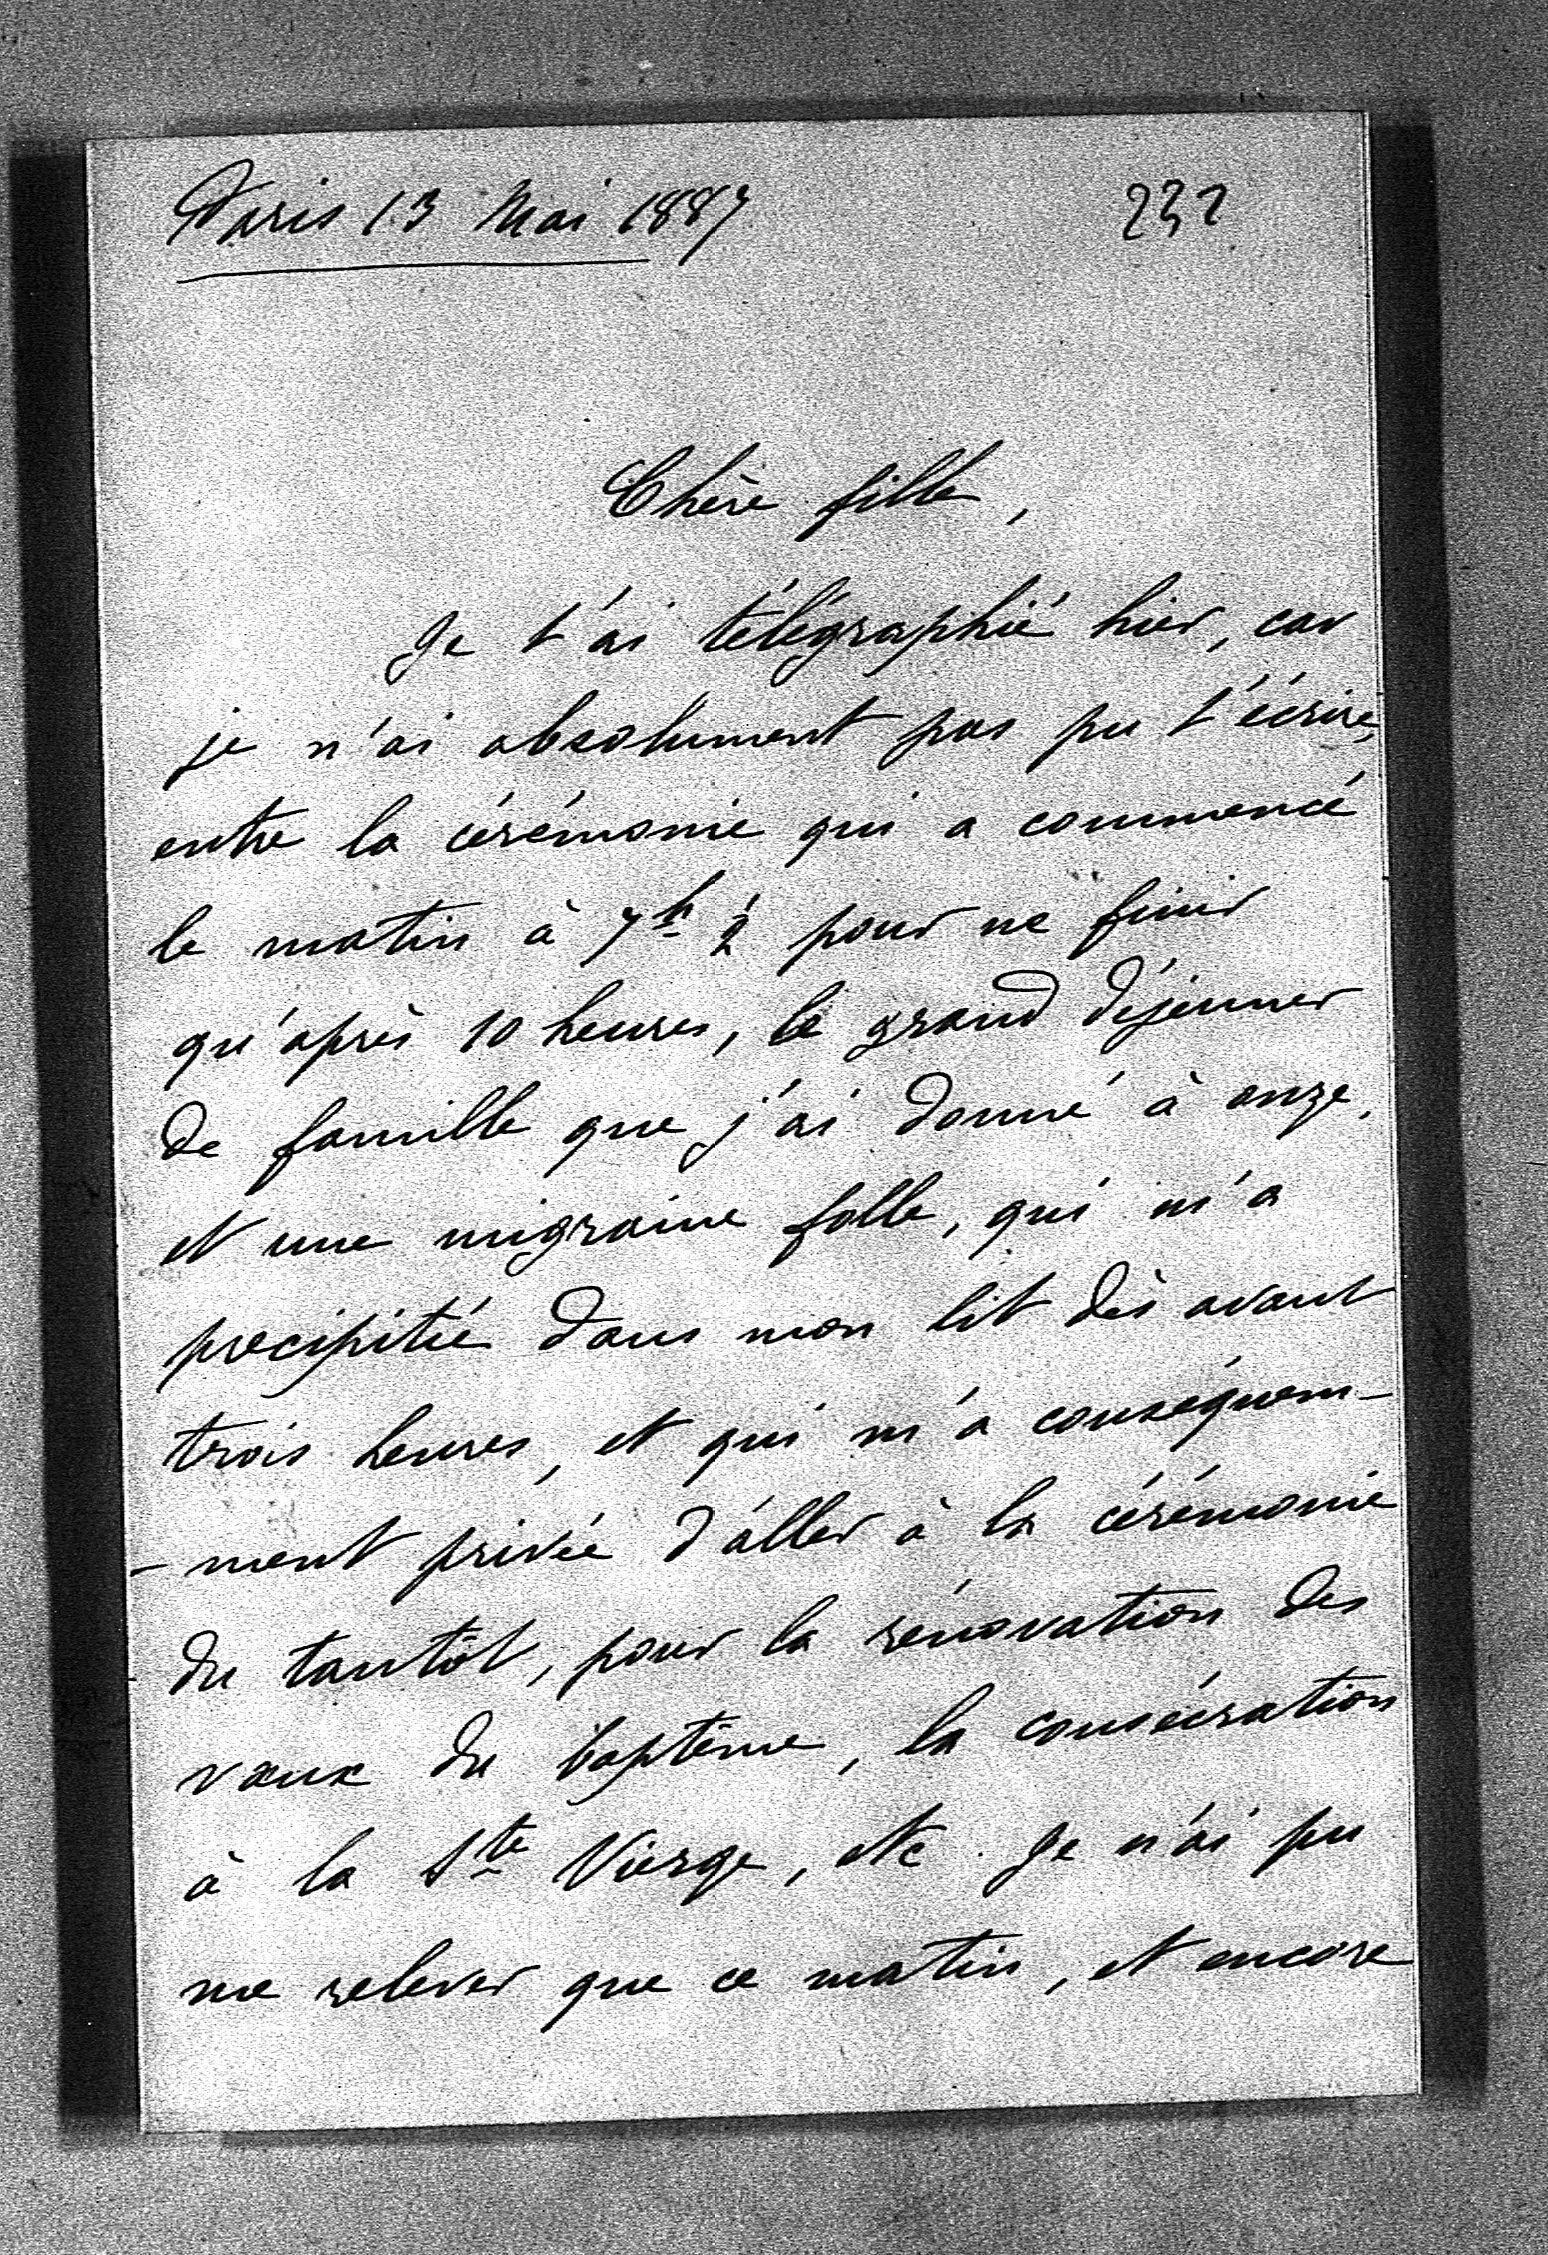 Paris 13 Mai 1887
232
Chère fille,
Je t'ai télégraphié hier, car
je n'ai absolument pas pu t'écrire,
entre la cérémonie qui a commencé
le matin à 7h ½ pour ne finir
qu'après 10 heures, le grand déjeuner
de famille que j'ai donné à onze,
et une migraine folle, qui m'a
precipitée dans mon lit dès avant
trois heures, et qui m'a conséquem-
-ment privée d'aller à la cérémonie
du tantôt, pour la rénovation des
vœux du baptême, la consécration
à la Ste Vierge, etc. Je n'ai pu
me relever que ce matin, et encore